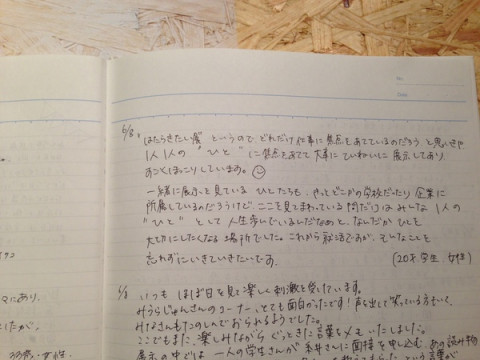 No.
Date
6/8。
はたらきたい展 というので どれだけ仕事に焦点をあてているのだろう と思いきや
1人1人の "ひと" に焦点をあてて 大事に ていねいに 展示してあり
すごくほっこりしています。
一緒に展示を見ている ひとたちも、 やっぱどこかの学校だったり 企業に
所属しているのだろうけど、 ここを見てまわっている間だけは みんな 1人の
"ひと" として 人生歩んでいるんだなぁと、なんだか ひとを
大切にしたくなる 場所でした。これから就活ですが、そんなことを
忘れずにいきていきたいです。
(20才 学生 女性)
6/8 いつも ほぼ日を見て楽しく刺激を受けています。
みうらじゅんさんのコーナー、とても面白かったです! 声を出して笑っている方もいて、
みなさんもたのしんでおられるようでした。
ここでもまた、楽しみながら ぐっときた言葉をメモ いたしました。
展示の中では 一人の学生さんが 糸井さんに面接を申し込む、あの読み物
々にあり、
たが、